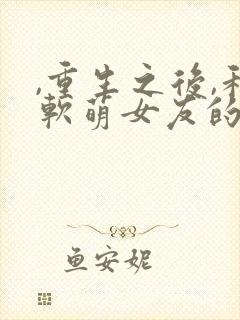 ,重生之後,
軟萌女友的
鱼安妮